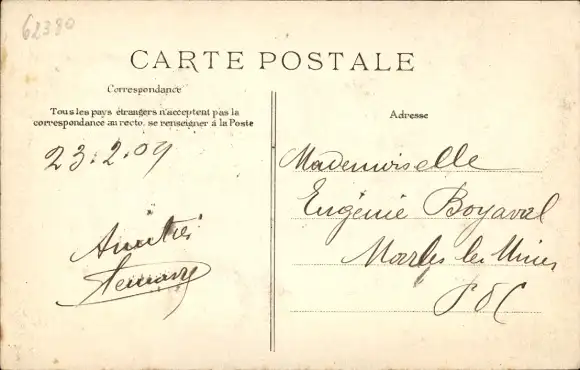 62380
CARTE POSTALE
Correspondance
Tous les pays étrangers n'acceptent pas la
correspondance au recto, se renseigner à la Poste
Adresse
23.2.09
Amitiés
Mademoiselle
Eugénie Boyaval
Marles les Mines
P d C